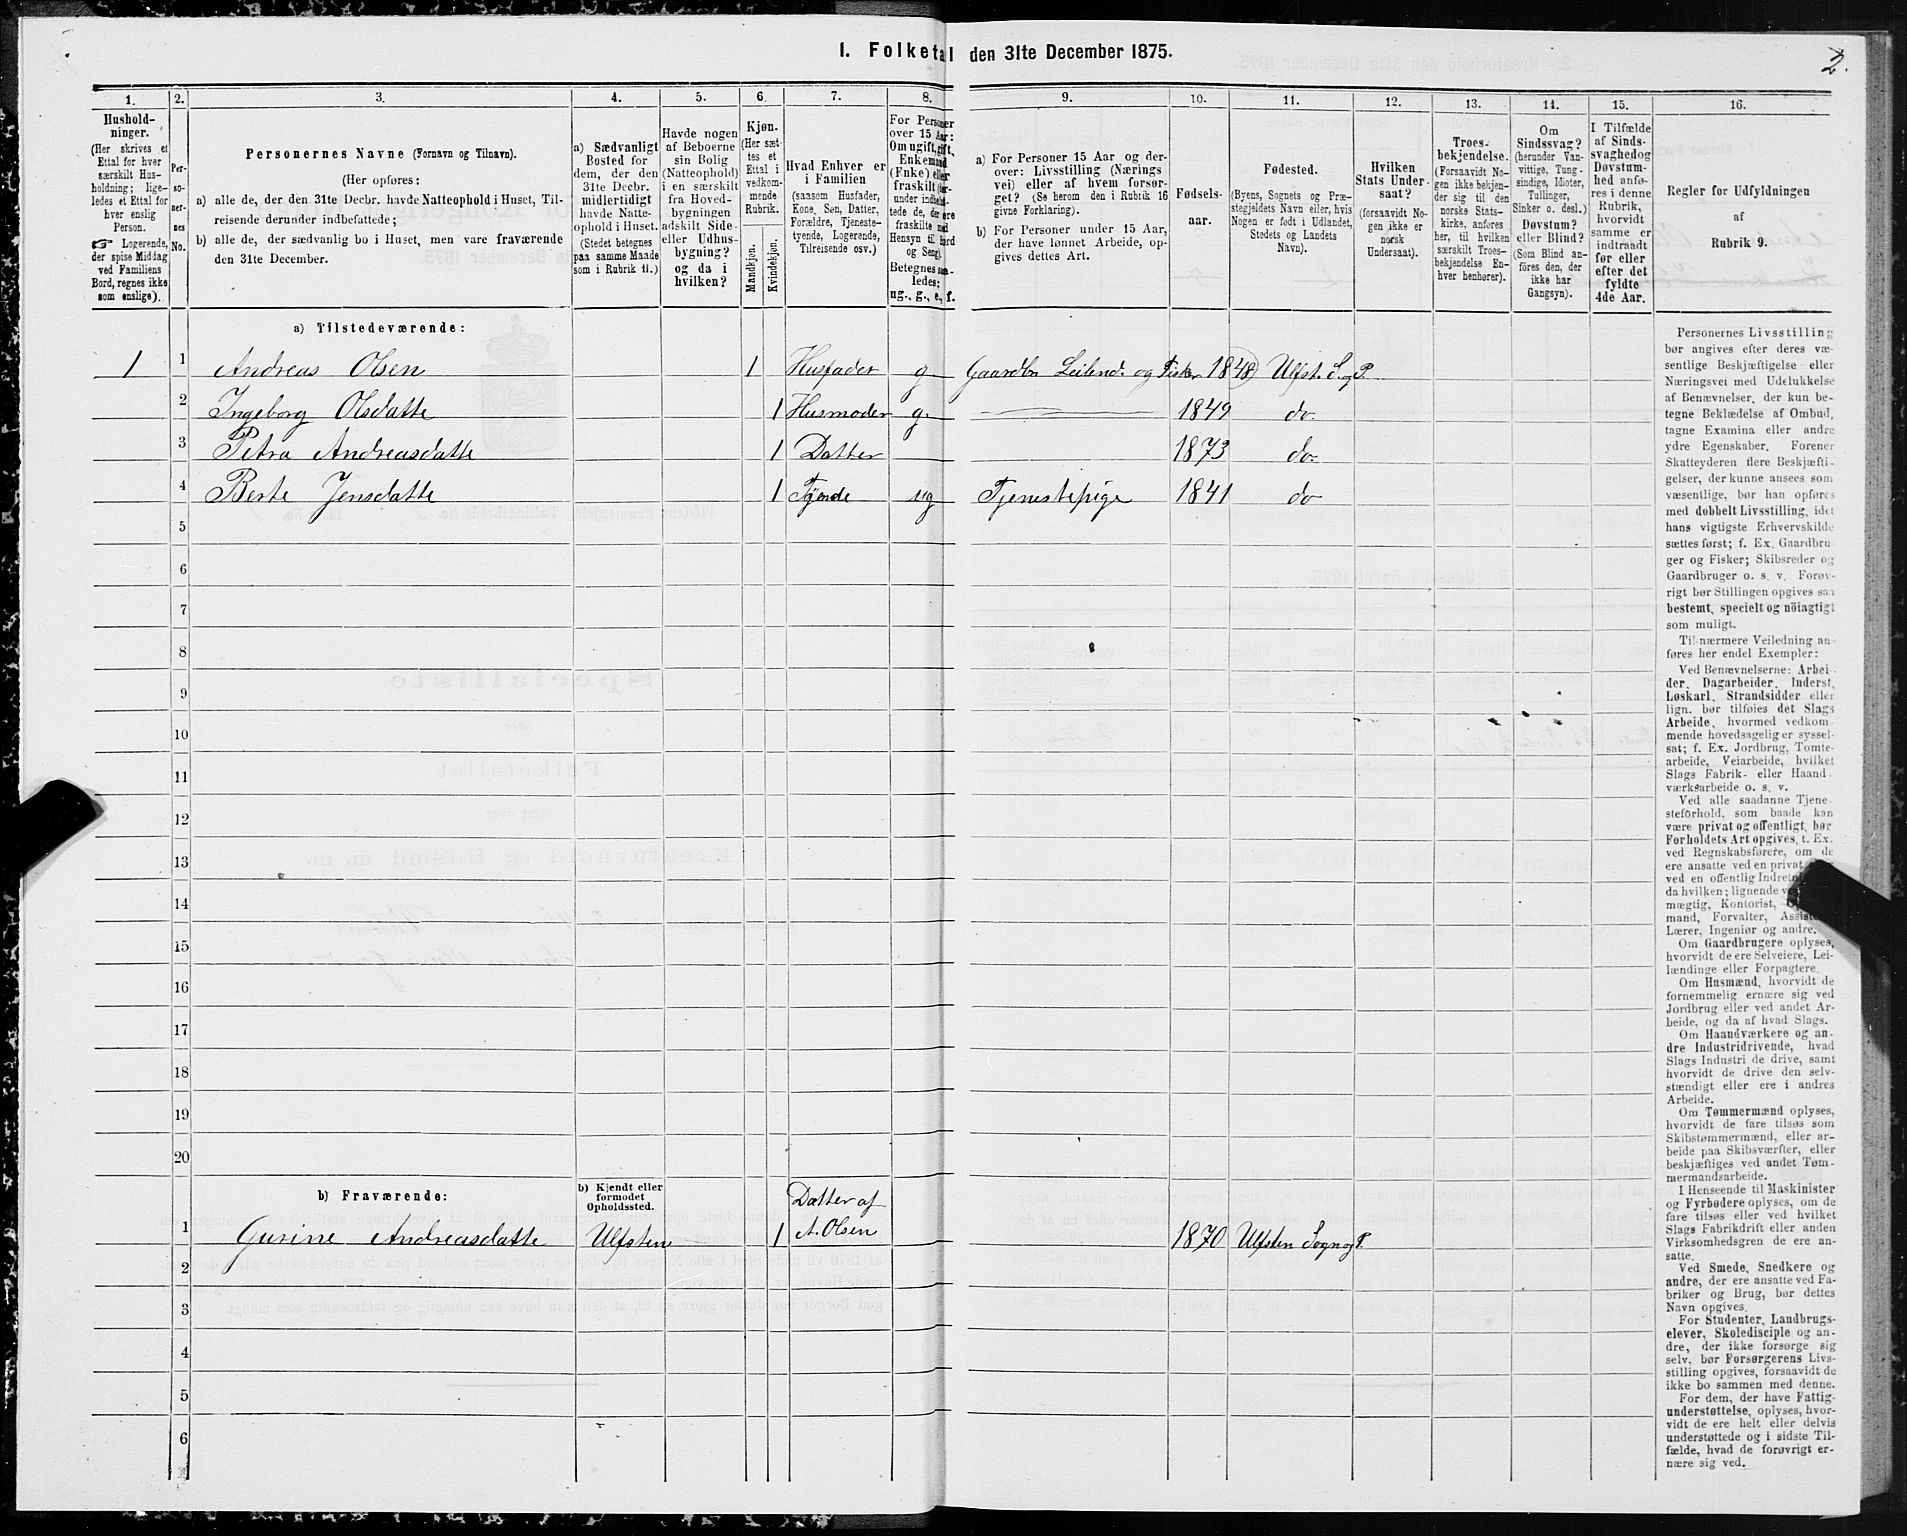 I. Folketal den 31te December 1875.
2.
1. 2. 3. 4. 5. 6. 7. 8. 9. 10. 11. 12. 13. 14. 15. 16.
Hushold-
ninger.
(Her skrives et
Ettal for hver
særskilt Hus-
holdning; lige-
ledes et Ettal for
hver enslig
Person.
☞ Logerende,
der spise Middag
ved Familiens
Bord, regnes ikke
som enslige).
Per-
so-
ner-
nes
No.
Personernes Navne (Fornavn og Tilnavn).
(Her opføres:
a) alle de, der den 31te Decbr. havde Natteophold i Huset, Til-
reisende derunder indbefattede;
b) alle de, der sædvanlig bo i Huset, men vare fraværende
den 31te December.
a) Sædvanligt
Bosted for
dem, der den
31te Decbr.
midlertidigt
havde Natte-
ophold i Huset.
(Stedet betegnes
paa samme Maade
som i Rubrik 11.)
Havde nogen
af Beboerne
sin Bolig
(Natteophold)
i en særskilt
fra Hoved-
bygningen
adskilt Side-
eller Udhus-
bygning?
og da i
hvilken?
Kjøn.
(Her sæt-
tes et
Ettal i
vedkom-
mende
Rubrik.
Mandkjøn.
Kvindekjøn.
Hvad Enhver er
i Familien
(saasom Husfader,
Kone, Søn, Datter,
Forældre, Tjeneste-
tyende, Logerende,
Tilreisende osv.)
For Personer
over 15 Aar:
Om ugift, gift,
Enkemand
(Enke) eller
fraskilt
Betegnes saa-
ledes:
ug., g., e, f.
a) For Personer 15 Aar og der-
over: Livsstilling (Nærings
vei) eller af hvem forsør-
get? (Se herom den i Rubrik 16
givne Forklaring).
b) For Personer under 15 Aar,
der have lønnet Arbeide, op-
gives dettes Art.
Fødsels-
aar.
Fødested.
(Byens, Sognets og Præ-
stegjeldets Navn eller, hvis
Nogen er født i Udlandet,
Stedets og Landets
Navn).
Hvilken
Stats Under-
saat?
(forsaavidt No-
gen ikke er
norsk
Undersaat).
Troes-
bekjendelse.
(Forsaavidt No-
gen ikke bekjen-
der sig til den
norske Stats-
kirke, anføres
her, til hvilken
særskilt Troes-
bekjendelse En-
hver henhører).
Om
Sindssvag?
(herunder Van-
vittige, Tung-
sindige, Idioter,
Tullinger,
Sinker o. desl.)
Døvstum?
eller Blind?
(Som Blind an-
føres den, der
ikke har
Gangsyn).
I Tilfælde
af Sinds-
svaghed og
Døvstum-
hed anfø-
res i denne
Rubrik,
hvorvidt
samme er
indtraadt
før eller
efter det
fyldte
4de Aar.
Regler for Udfyldningen
af
Rubrik 9.
a) Tilstedeværende:
1 1 Andreas Olsen 1 Husfader g. Gaardbr Leilend. og Fisker 1848 Ulfst. S. og P.
2 Ingeborg Olsdatte 1 Husmoder g. 1849 do.
3 Petra Andreasdatte 1 Datter 1873 do.
4 Berte Jensdatte 1 Tyende ug Tjenestepige 1841 do
5
6
7
8
9
10
11
12
13
14
15
16
17
18
19
20
b) Fraværende:
b) Kjendt eller
formodet
Opholdssted.
Datter af
1 Gurine Andreasdatte Ulfsten 1 A. Olsen 1870 Ulfsten Sogn og P.
2
3
4
5
6
Personernes Livsstilling
bør angives efter deres væ-
sentlige Beskjæftigelse eller
Næringsvei med Udelukkelse
af Benævnelser, der kun be-
tegne Beklædelse af Ombud,
tagne Examina eller andre
ydre Egenskaber. Forener
Skatteyderen flere Beskjæfti-
gelser, der kunne ansees som
væsentlige, bør han opføres
med dobbelt Livsstilling, idet
hans vigtigste Erhvervskilde
sættes først; f. Ex. Gaardbru-
ger og Fisker; Skibsreder og
Gaardbruger o. s. v. Forøv-
rigt bør Stillingen opgives saa
bestemt, specielt og nöiagtigt
som muligt.
Til nærmere Veiledning an-
føres her endel Exempler:
Ved Benævnelserne: Arbei-
der, Dagarbeider, Inderst,
Løskarl, Strandsidder eller
lign. bør tilføies det Slags
Arbeide, hvormed vedkom-
mende hovedsagelig er syssel-
sat; f. Ex. Jordbrug, Tomte-
arbeide, Veiarbeide, hvilket
Slags Fabrik- eller Haand-
værksarbeide o. s. v.
Ved alle saadanne Tjene-
steforhold, som baade kan
være privat og offentligt, bør
Forholdets Art opgives, t. Ex.
ved Regnskabsførere, om de
ere ansatte ved en privat
ved en offentlig
da hvilken; lignende
mægtig, Kontorist,
mand, Forvalter,
Lærer, Ingeniør og andre.
Om Gaardbrugere oplyses,
hvorvidt de ere Selveiere, Lei-
lændinge eller Forpagtere.
Om Husmænd, hvorvidt de
fornemmelig ernære sig ved
Jordbrug eller ved andet Ar-
beide, og da af hvad Slags.
Om Haandværkere og an-
dre Industridrivende, hvad
Slags Industri de drive, samt
hvorvidt de drive den selv-
stændigt eller ere i andres
Arbeide.
Om Tømmermænd oplyses,
hvorvidt de fare tilsøs som
Skibstømmermænd, eller ar-
beide paa Skibsværfter, eller
beskjæftiges ved andet Tøm-
mermandsarbeide.
I Henseende til Maskinister
og Fyrbødere oplyses, om de
fare tilsøs eller ved hvilket
Slags Fabrikdrift eller anden
Virksomhedsgren de ere an-
satte.
Ved Smede, Snedkere og
andre, der ere ansatte ved Fa-
briker og Brug, bør dettes
Navn opgives.
For Studenter, Landbrugs-
elever, Skoledisciple og an-
dre, der ikke forsørge sig
selv, bør Forsørgerens Livs-
stilling opgives, forsaavidt de
ikke bo sammen med denne.
For dem, der have Fattig-
understøttelse, oplyses, hvor-
vidt de ere helt eller delvis
understøttede og i sidste Til-
fælde, hvad de forøvrigt er-
nære sig ved.